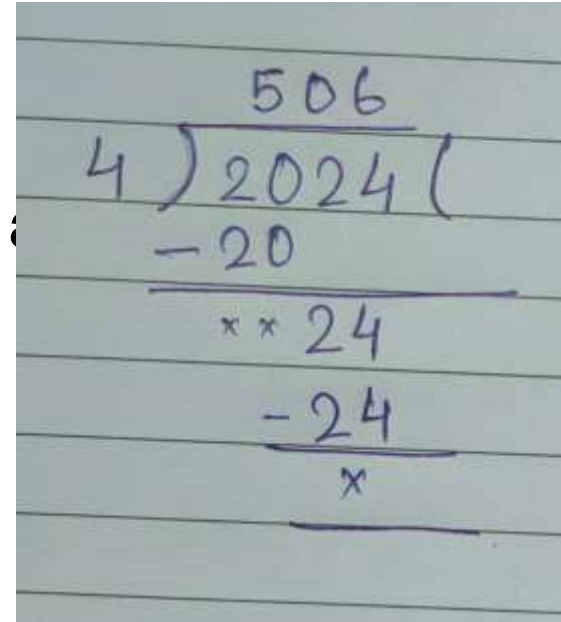 506
4 ) 2024 (
- 20
x x 24
- 24
x